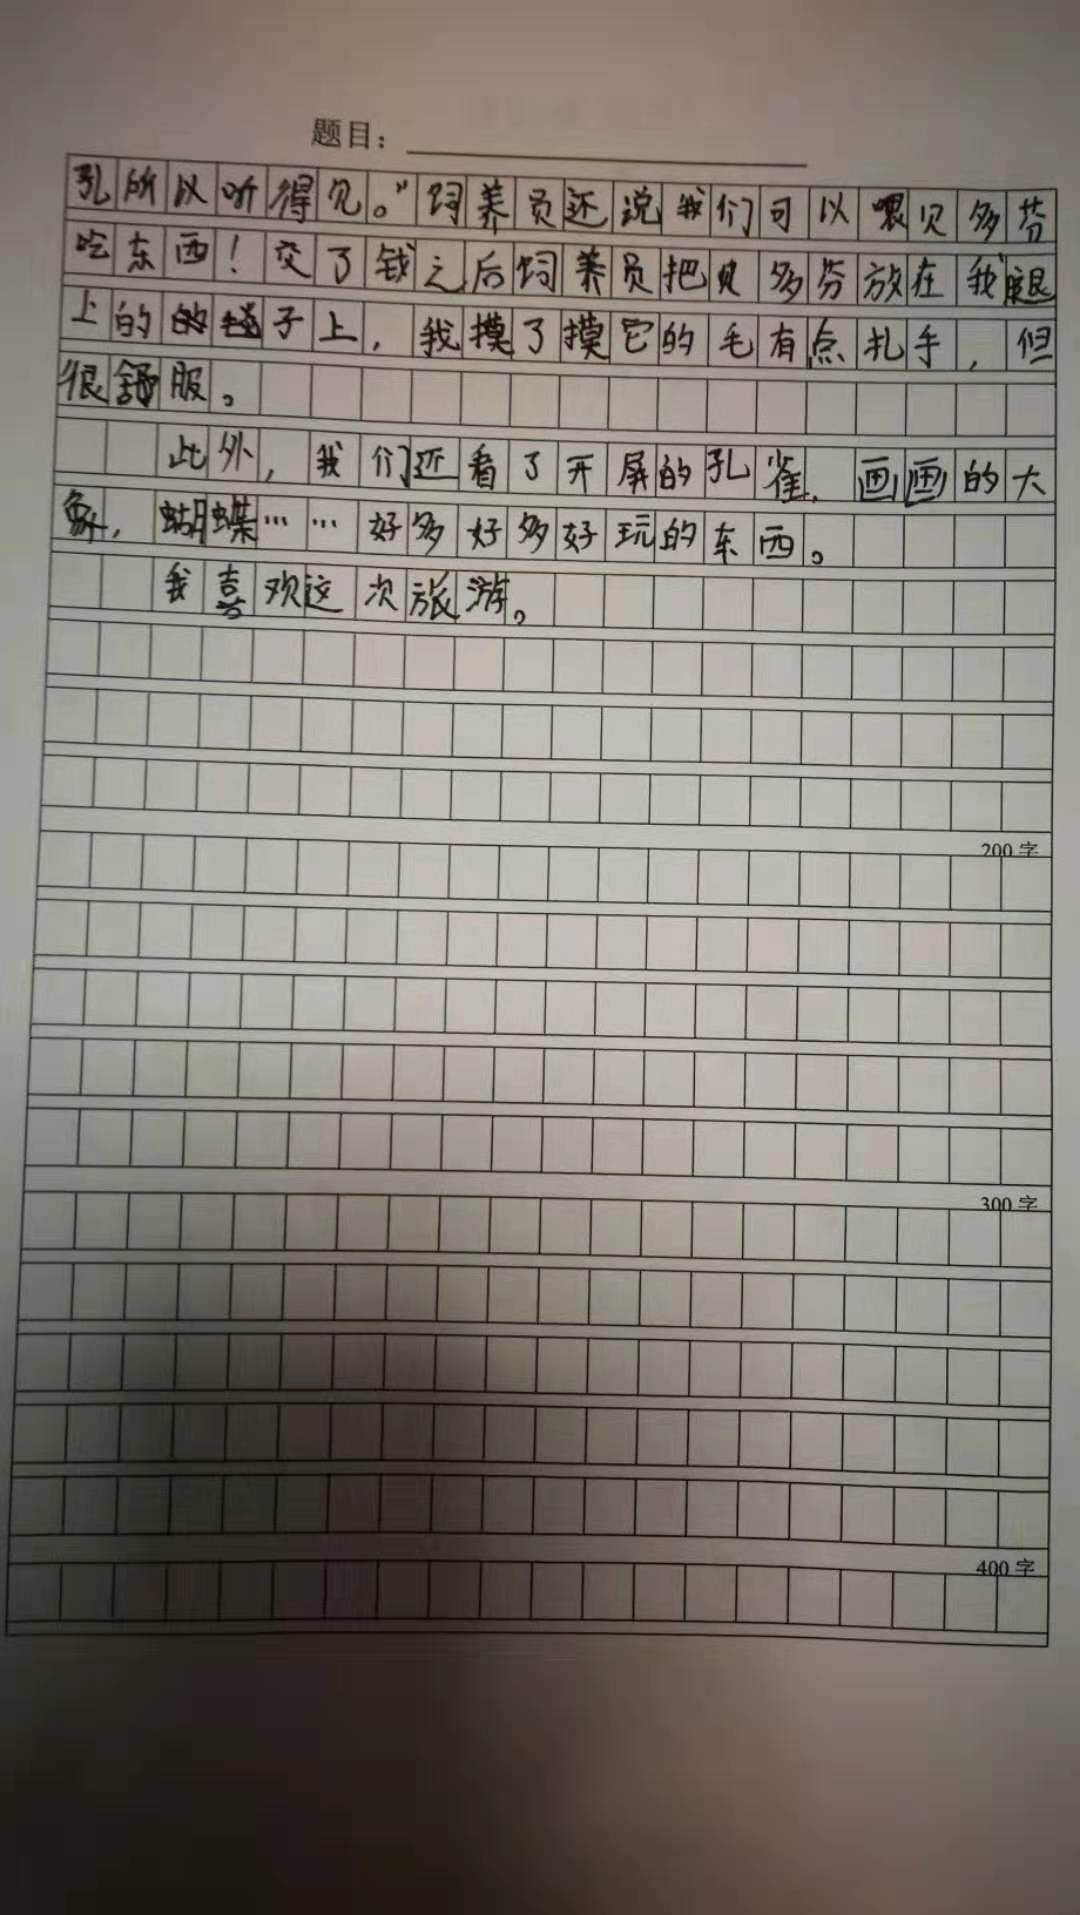 题目：
孔所以听得见。”饲养员还说我们可以喂贝多芬
吃东西！交了钱之后饲养员把贝多芬放在我腿
上的子上，我摸了摸它的毛有点扎手，但
很舒服。
此外，我们还看了开屏的孔雀，画画的大
象，蝴蝶……好多好多好玩的东西。
我喜欢这次旅游。
200字
300字
400字